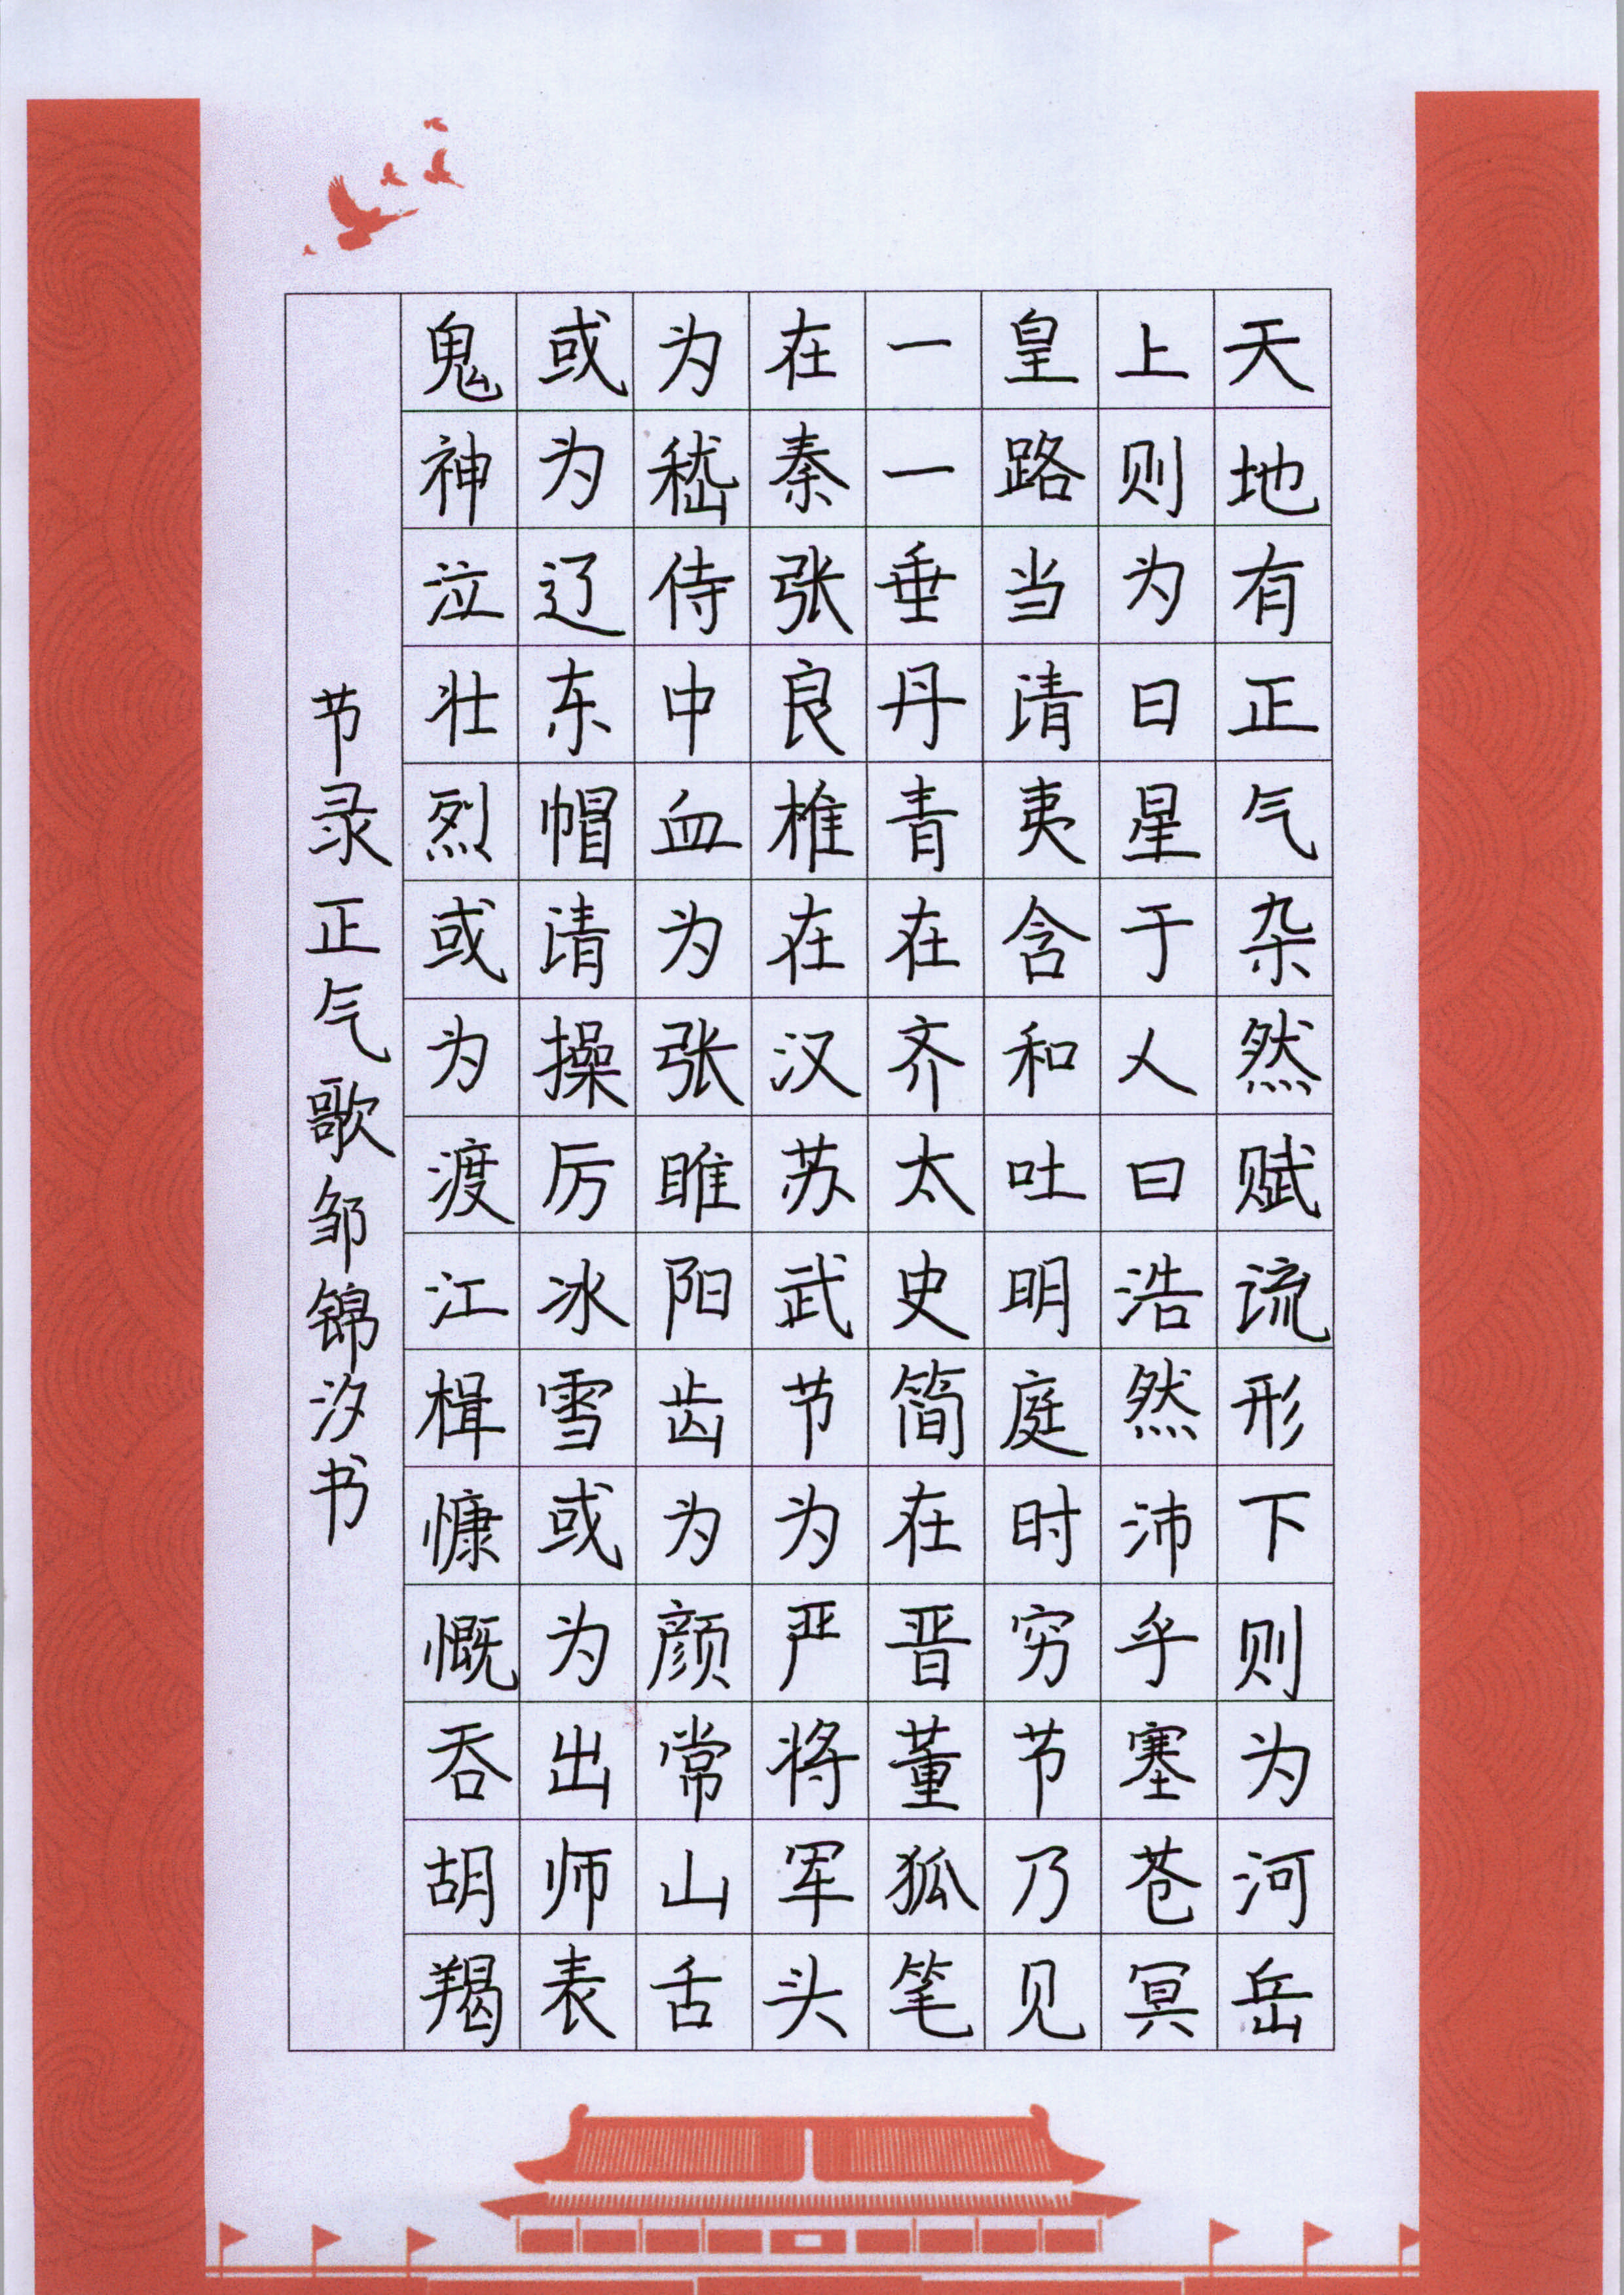 天地有正气杂然赋流形下则为河岳
上则为日星于人曰浩然沛乎塞苍冥
皇路当清夷含和吐明庭时穷节乃见
一一垂丹青在齐太史简在晋董狐笔
在秦张良椎在汉苏武节为严将军头
为嵇侍中血为张睢阳齿为颜常山舌
或为辽东帽清操厉冰雪或为出师表
鬼神泣壮烈或为渡江楫慷慨吞胡羯
节录正气歌邹锦汐书